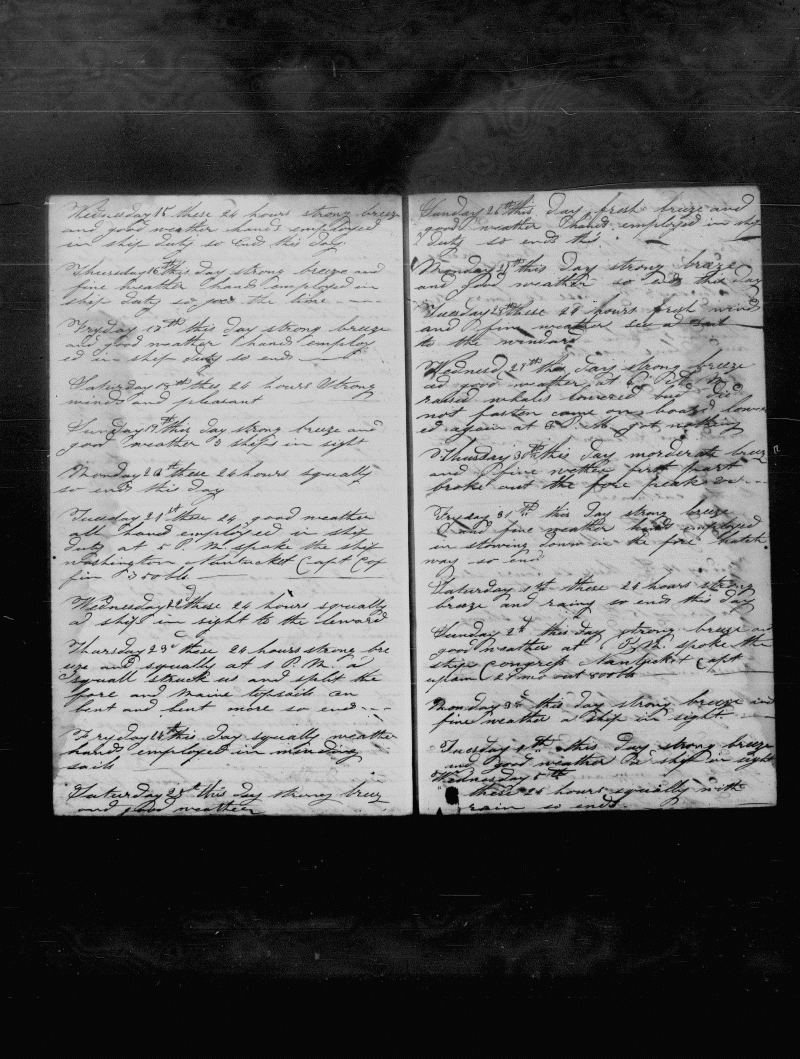 Wednesday 15 these 24 hours strong breeze
and good weather hands employed
in ship duty so Ends this day
Thuersday 16th this day strong breeze and
fine weather hands employed in
ship duty so the time
Fryday 17th this day strong breeze
and good weather hands employ
ed in ship duty so ends
Saturday 18th thes 24 hours Strong
winds and pleasant
Sunday 19th this day strong breeze and
good weather 3 ships in sight
Monday 20th these 24 hours squally
so ends this day
Tuesday 21st these 24 good weather
all hands employed in ship
duty at 5 P. M. spoke the ship
Washington Nantucket Capt Cox
350 bbls
Wednesday 22d these 24 hours squally
a ship in sight to the leward
Thursday 23d these 24 hours strong bre
eze and squally at 1 P. M. a
squall struck us and split the
fore and maine topsails un
bent and bent more so ends
Fryday 24th this day squally weather
hands employed in mending
sails
Saturday 25th this day strong breez
and good weather
Sunday 26th this day fresh breeze and
good weather hands employed in ship
duty so ends this
Monday 27th this day strong breeze
and good weather so ends this day
Tuesday 28th these 24 hours fresh winds
and fine weather see a sail
to the windard
Wednesd 29th the day strong breeze
and good weather at 6
raised whales lowered but did
not fasten came on board lower
ed again at got nothing
Thursday 30th this day morderate breez
and fine wether first part
broke out the fore peak
Fryday 31st this day strong breeze
and fine weather hands employed
in stowing down in the fore hatch
way so end
Saturday 1st these 24 hours strong
breeze and rainy so ends this day
Sunday 2d this day strong breeze and
good weather at spoke the
ship Congress Nantucket Capt
27 mo out 800 bbls
Monday 3d this day strong breeze and
fine weather a ship in sight
Tuesday 4th this day strong breeze
and good weather a ship in sight
Wednesday 5th
these 24 hours squally with
rain so ends